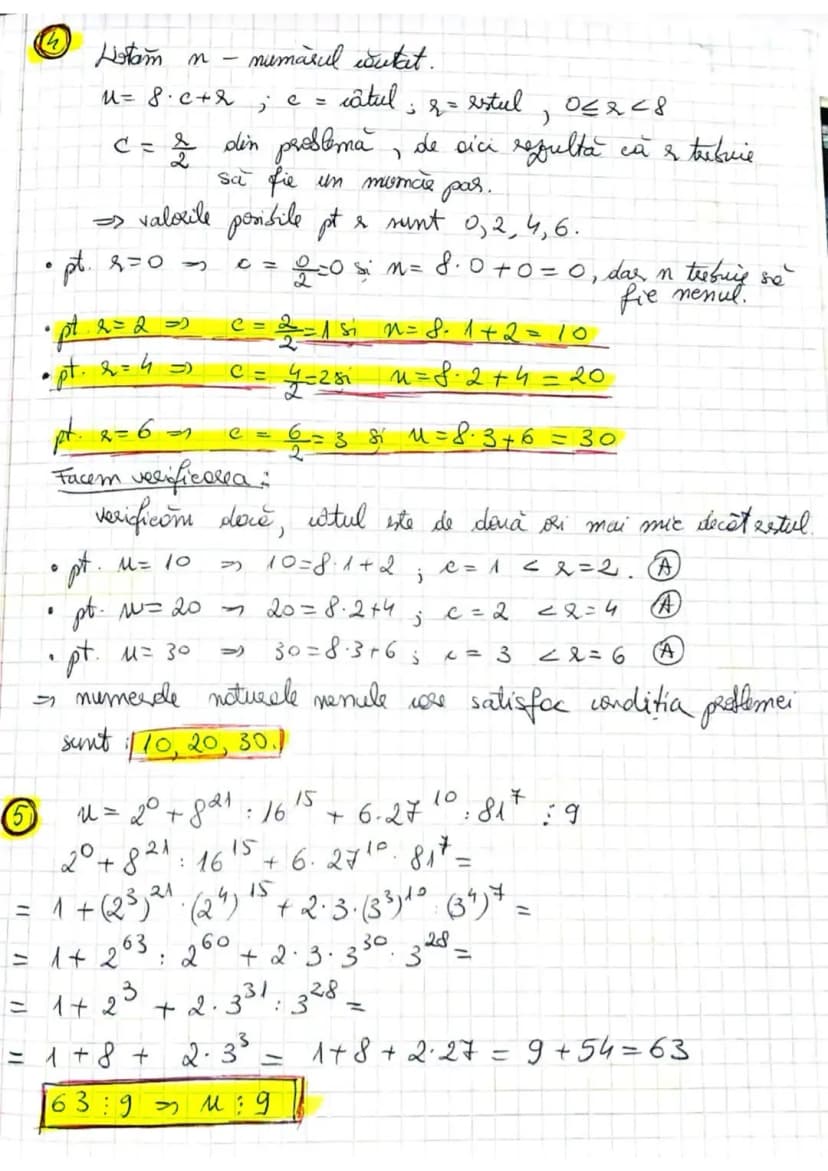 4 Notăm n - numărul căutat.
n = 8·c+r ; c = câtul ; r = restul , 0≤r<8
c = r/2 din problemă, de aici rezultă că r trebuie
să fie un număr par.
=> valorile posibile pt r sunt 0, 2, 4, 6.
• pt. r=0 => c = 0/2=0 și n= 8·0+0=0, dar n trebuie să
fie nenul.
• pt r=2 => c = 2/2=1 și n=8·1+2=10
• pt. r=4 => c = 4/2=2 și n=8·2+4=20
pt. r=6 => c = 6/2=3 și n=8·3+6=30
Facem verificarea:
verificăm dacă, câtul este de două ori mai mic decât restul.
• pt. n=10 => 10=8·1+2 ; c=1 < r=2. (A)
• pt. n=20 => 20=8·2+4 ; c=2 < r=4 (A)
• pt. n=30 => 30=8·3+6 ; c=3 < r=6 (A)
=> numerele naturale nenule care satisfac condiția problemei
sunt : 10, 20, 30.
5 n = 2⁰ + 8²¹ : 16¹⁵ + 6·27¹⁰ : 81⁷ ⋮ 9
2⁰ + 8²¹ : 16¹⁵ + 6·27¹⁰ : 81⁷ =
= 1 + (2³)²¹ : (2⁴)¹⁵ + 2·3·(3³)¹⁰ : (3⁴)⁷ =
= 1 + 2⁶³ : 2⁶⁰ + 2·3·3³⁰ : 3²⁸ =
= 1 + 2³ + 2·3³¹ : 3²⁸ =
= 1 + 8 + 2·3³ = 1+8+2·27 = 9+54=63
63 ⋮ 9 => n ⋮ 9